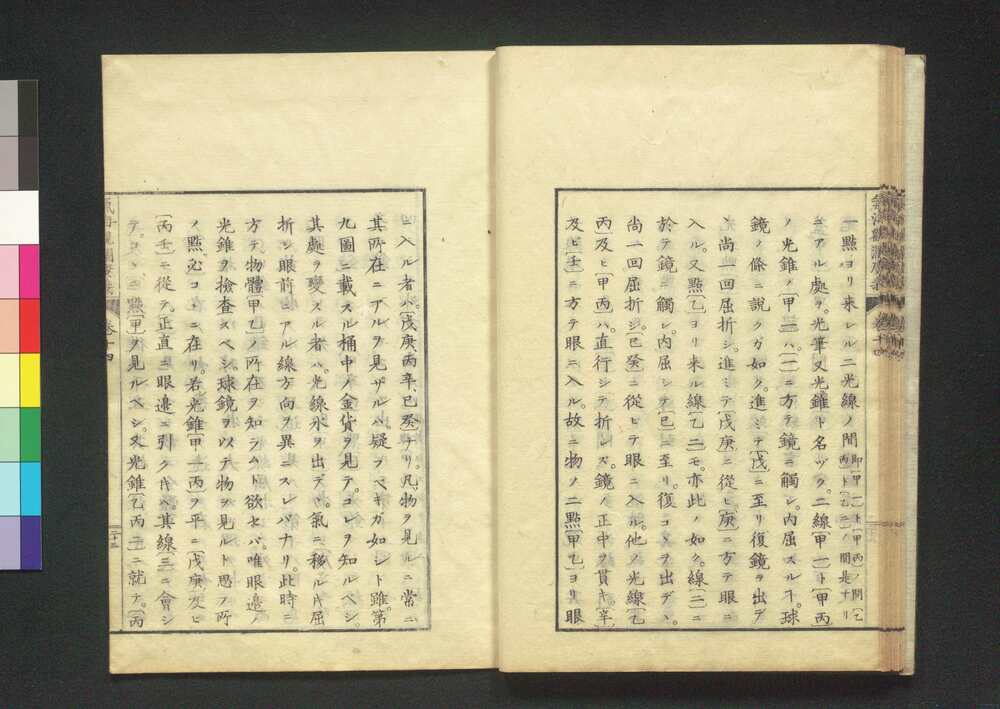 一點ヨリ来レル二光線ノ間即〔甲一〕ト〔甲丙〕ノ間〔乙丙〕ト〔乙二〕ノ間是ナリ
ニアル處ヲ。光筆又光錐ト名ヅク。二線〔甲一〕ト〔甲丙〕
ノ光錐ノ〔甲一〕ハ。〔一〕ニ方テ鏡ニ觸レ。内屈スルヿ。球
鏡ノ條ニ説クガ如ク。進ミテ〔戊〕ニ至リ復鏡ヲ出デ
ヽ尚一回屈折シ。進ミテ〔戊庚〕ニ從ヒ〔庚〕ニ方テ眼ニ
入ル。又點〔乙〕ヨリ来ル線〔乙二〕モ。亦此ノ如ク。線〔二〕ニ
於テ鏡ニ觸レ。内屈シテ〔己〕ニ至リ。復コヽヲ出デヽ。
尚一回屈折シ。〔己癸〕ニ從ヒテ眼ニ入ル。他ノ光線〔乙
丙〕及ヒ〔甲丙〕ハ。直行シテ折レズ。鏡ノ正中ヲ貫キ。〔辛〕
及ビ〔壬〕ニ方テ眼ニ入ル。故ニ物ノ二點〔甲乙〕ヨリ眼
ニ入ル者ハ〔戊庚丙辛、己癸〕ナリ。凡物ヲ見ルニ常ニ
其所在ニアルヲ見ザルハ疑フベキガ如シト雖。第
九圖ニ載スル桶中ノ金貨ヲ見テ。コレヲ知ルベシ。
其處ヲ變スル者ハ。光線水ヲ出デヽ。氣ニ移ルヰ屈
折シ眼前ニアル線方向ヲ異ニスレバナリ。此時ニ
方テ。物體〔甲乙〕ノ所在ヲ知ラムト欲セバ。唯眼邉ノ
光錐ヲ檢査スベシ。球鏡ヲ以テ物ヲ見ルト思フ所
ノ點必コヽニ在リ。若光錐〔甲一丙〕ヲ平ニ〔戊庚及ヒ
丙壬〕ニ從テ。正直ニ眼邉ニ引クヰハ。其線〔三〕ニ會シ
テ。コヽニ點〔甲〕ヲ見ルベシ。又光錐〔乙丙二〕ニ就テ。〔丙
卷十四